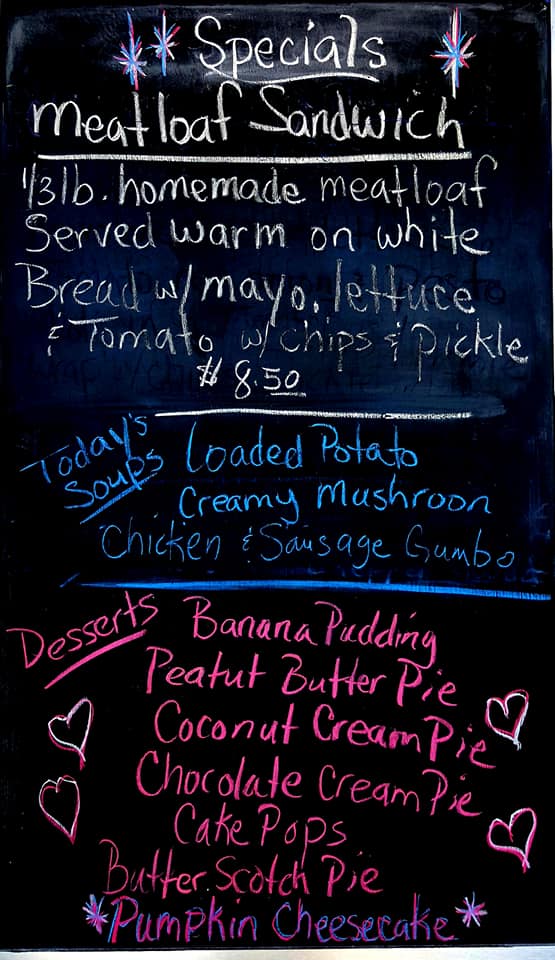 Specials
Meatloaf Sandwich
1/3 lb. homemade meatloaf
Served warm on white
Bread w/ mayo, lettuce
& Tomato w/ chips & Pickle
$ 8.50
Today's Soups
Loaded Potato
Creamy Mushroon
Chicken & Sausage Gumbo
Desserts
Banana Pudding
Peatut Butter Pie
Coconut Cream Pie
Chocolate Cream Pie
Cake Pops
Butter Scotch Pie
*Pumpkin Cheesecake*